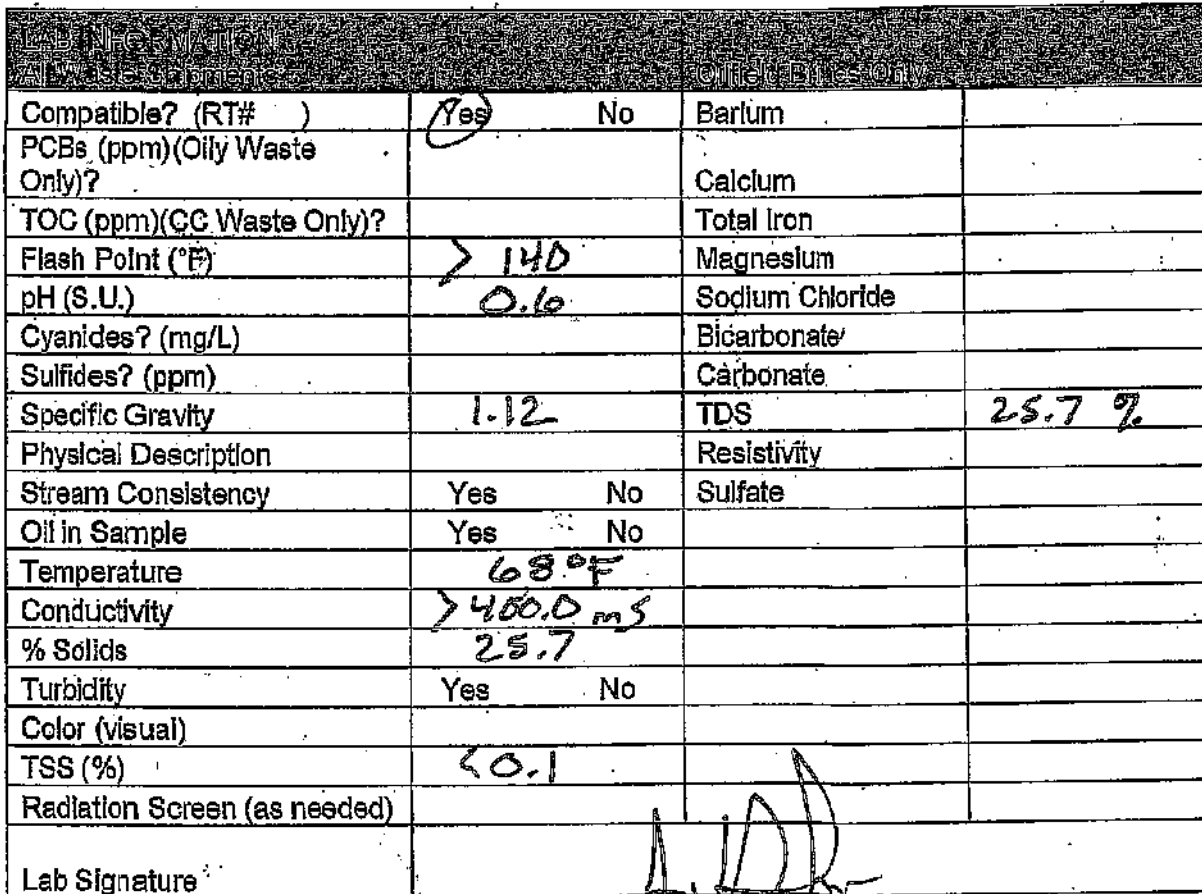 LAB INFORMATION
All Waste Shipments Oilfield Brines Only
Compatible? (RT# ) Yes No Barium
PCBs (ppm)(Oily Waste
Only)? Calcium
TOC (ppm)(CC Waste Only)? Total Iron
Flash Point (°F) > 140 Magnesium
pH (S.U.) 0.6 Sodium Chloride
Cyanides? (mg/L) Bicarbonate
Sulfides? (ppm) Carbonate
Specific Gravity 1.12 TDS 25.7 %
Physical Description Resistivity
Stream Consistency Yes No Sulfate
Oil in Sample Yes No
Temperature 68°F
Conductivity >400.0 mS
% Solids 25.7
Turbidity Yes No
Color (visual)
TSS (%) <0.1
Radiation Screen (as needed)
Lab Signature